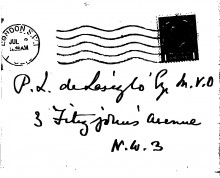 LONDON S.W.1
JUL
AM
P. L. de László Esq M.V.O
3 Fitzjohn's Avenue
N.W.3